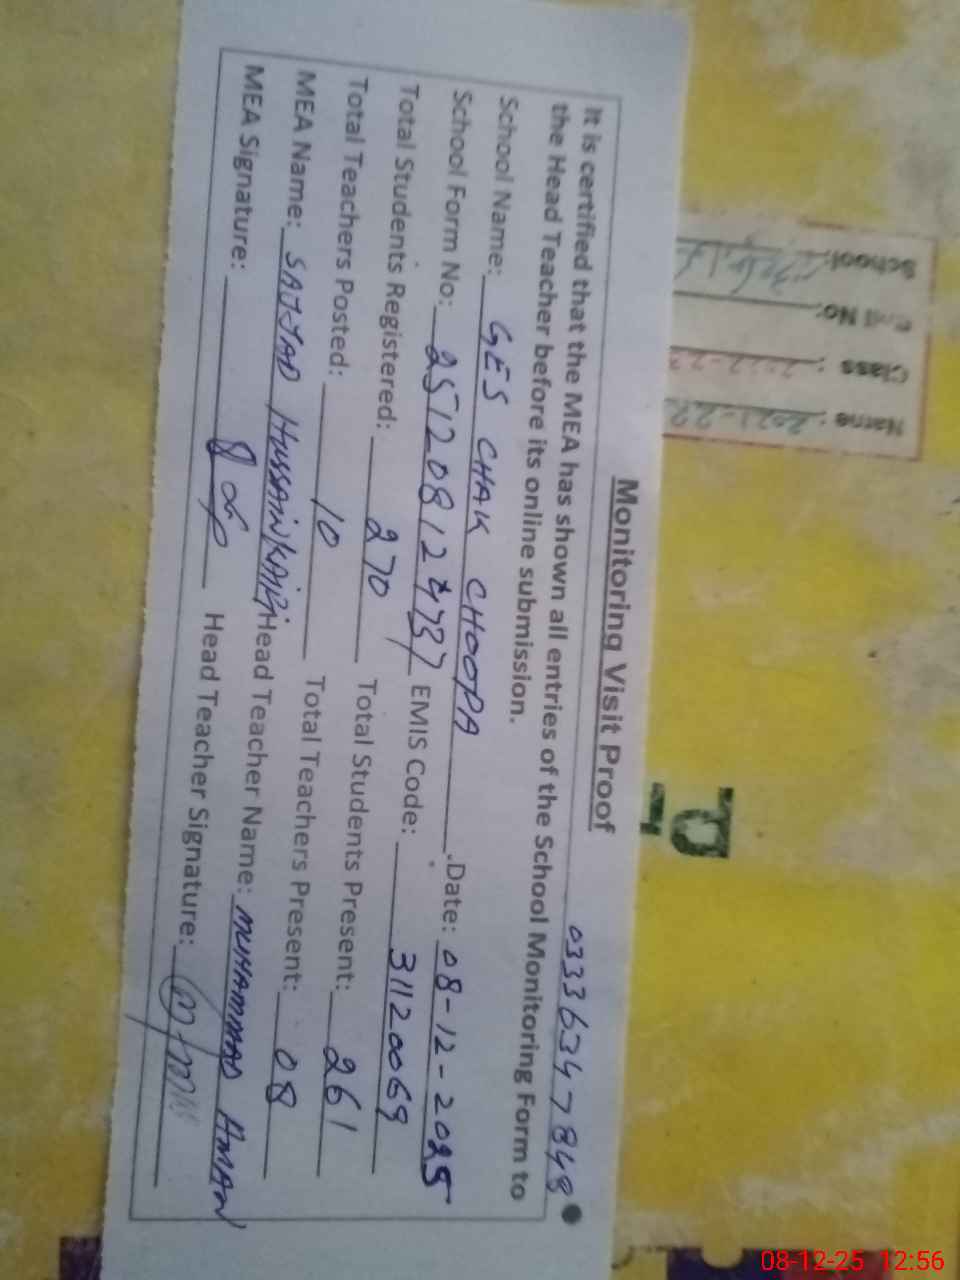 Monitoring Visit Proof
03336347848
It is certified that the MEA has shown all entries of the School Monitoring Form to
the Head Teacher before its online submission.
School Name: GES CHAK CHOOPA .Date: 08-12-2025
School Form No: EMIS Code: 31120069
Total Students Registered: 270 Total Students Present: 261
Total Teachers Posted: 10 Total Teachers Present: 08
MEA Name: SAJJAD HUSSAIN Head Teacher Name: MUHAMMAD AMAN
MEA Signature: Head Teacher Signature:
Name : 2021-22
Class : 2022-23
No:
School:
08-12-25 12:56